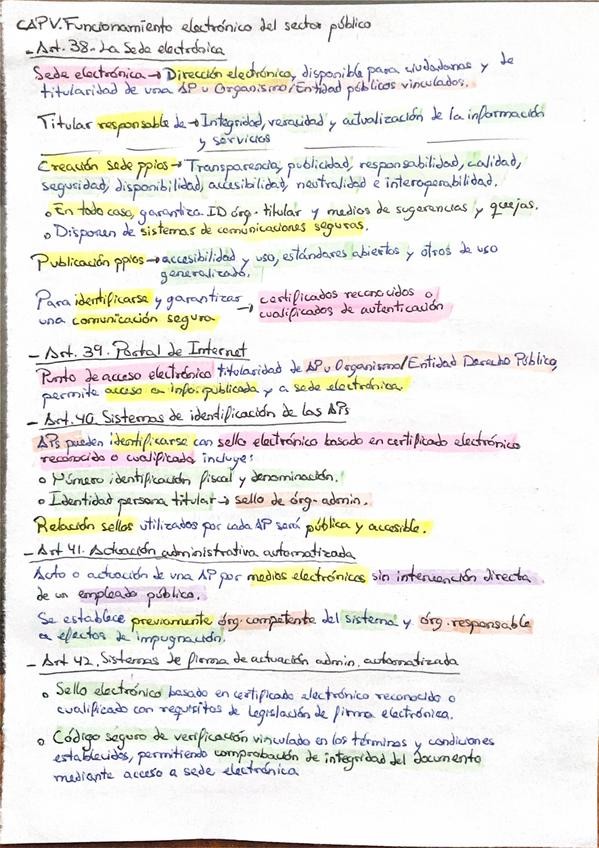 CAPV. Funcionamiento electrónico del sector público
- Art. 38.- La Sede electrónica
Sede electrónica → Dirección electrónica, disponible para ciudadanos y de
titularidad de una AP u Organismo/Entidad públicos vinculados.
Titular responsable de → Integridad, veracidad y actualización de la información
y servicios
Creación sede ppios → Transparencia, publicidad, responsabilidad, calidad,
seguridad, disponibilidad, accesibilidad, neutralidad e interoperabilidad.
o En todo caso, garantiza ID órg. titular y medios de sugerencias y quejas.
o Disponen de sistemas de comunicaciones seguras.
Publicación ppios → accesibilidad y uso, estándares abiertos y otros de uso
generalizado.
Para identificarse y garantizar → certificados reconocidos o
una comunicación segura cualificados de autenticación
- Art. 39. Portal de Internet
Punto de acceso electrónico titularidad de AP u Organismo/Entidad Derecho Público,
permite acceso a info. publicada y a sede electrónica.
- Art. 40. Sistemas de identificación de las APs
APs pueden identificarse con sello electrónico basado en certificado electrónico
reconocido o cualificado, incluye:
o Número identificación fiscal y denominación.
o Identidad persona titular → sello de órg. admin.
Relación sellos utilizados por cada AP será pública y accesible.
- Art 41. Actuación administrativa automatizada
Acto o actuación de una AP por medios electrónicos sin intervención directa
de un empleado público.
Se establece previamente órg. competente del sistema y órg. responsable
a efectos de impugnación.
- Art 42. Sistemas de firma de actuación admin. automatizada
o Sello electrónico basado en certificado electrónico reconocido o
cualificado con requisitos de legislación de firma electrónica.
o Código seguro de verificación vinculado en los términos y condiciones
establecidos, permitiendo comprobación de integridad del documento
mediante acceso a sede electrónica